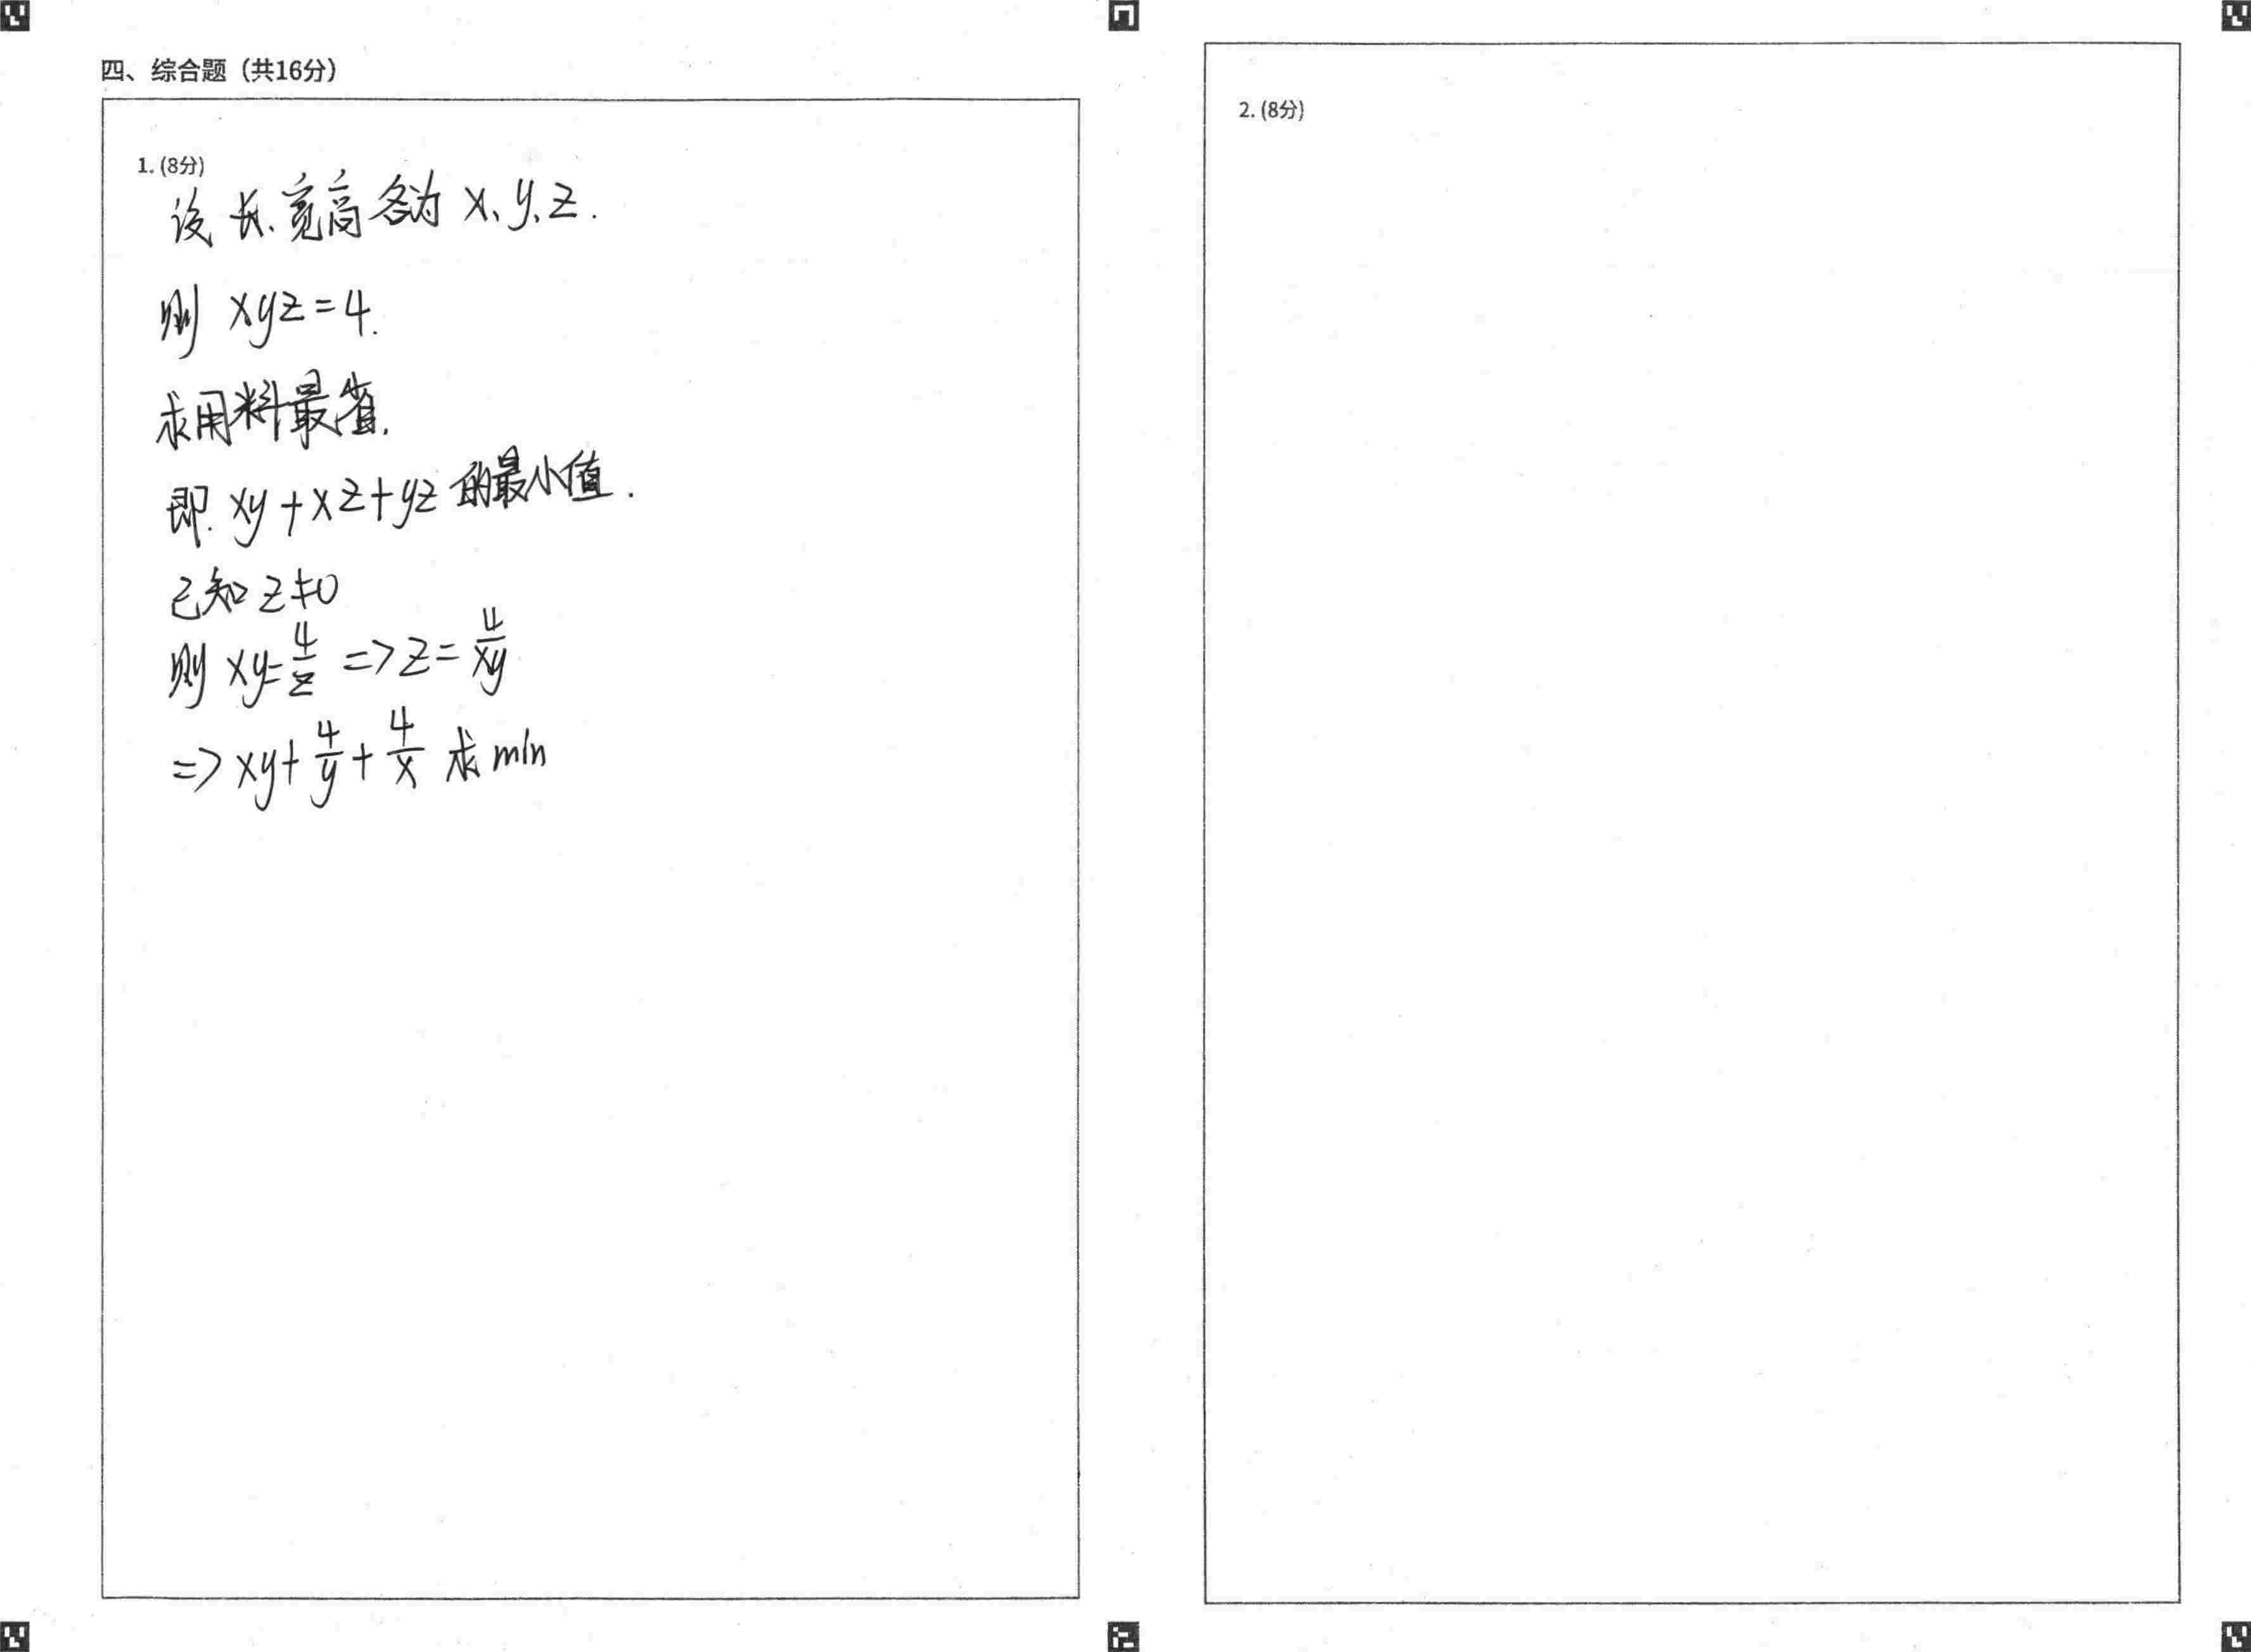 四、综合题（共16分）
1. (8分)
设 长、宽高 各为 x、y、z.
则 xyz=4.
求用料最省.
即. xy+xz+yz 的最小值.
已知 z≠0
则 xy=4/z => z=4/xy
=> xy+4/y+4/x 求 min
2. (8分)